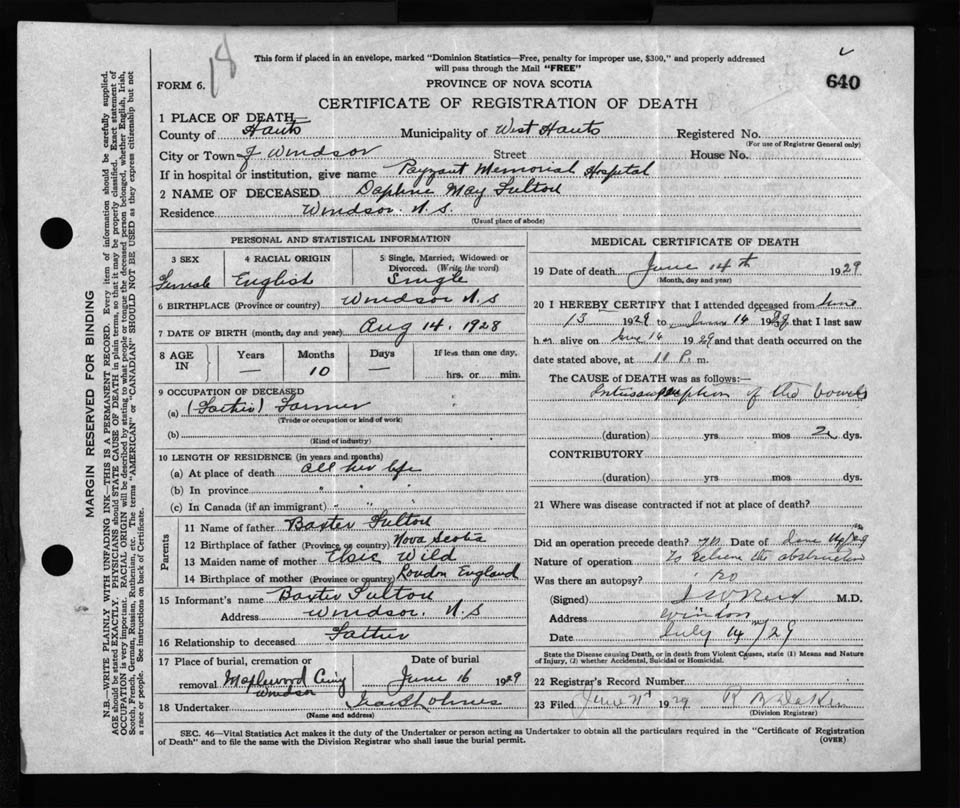 18
This form if placed in an envelope, marked "Dominion Statistics—Free, penalty for improper use, $300," and properly addressed
will pass through the Mail "FREE"
640
FORM 6.
PROVINCE OF NOVA SCOTIA
CERTIFICATE OF REGISTRATION OF DEATH
1 PLACE OF DEATH—
County of Hants Municipality of West Hants Registered No.
(For use of Registrar General only)
City or Town of Windsor Street House No.
If in hospital or institution, give name Payzant Memorial Hospital
2 NAME OF DECEASED Daphne May Fulton
Residence Windsor. N.S.
(Usual place of abode)
PERSONAL AND STATISTICAL INFORMATION
3 SEX 4 RACIAL ORIGIN 5 Single, Married, Widowed or
Divorced. (Write the word)
Female English Single
6 BIRTHPLACE (Province or country) Windsor N.S
7 DATE OF BIRTH (month, day and year) Aug 14. 1928
8 AGE IN Years Months Days If less than one day,
— 10 — hrs. or min.
9 OCCUPATION OF DECEASED
(a) (Father) Farmer
(Trade or occupation or kind of work)
(b)
(Kind of industry)
10 LENGTH OF RESIDENCE (in years and months)
(a) At place of death all her life
(b) In province " " "
(c) In Canada (if an immigrant) " " "
Parents
11 Name of father Baxter Fulton
12 Birthplace of father (Province or country) Nova Scotia
13 Maiden name of mother Elsie Wild
14 Birthplace of mother (Province or country) London England
15 Informant's name Baxter Fulton
Address Windsor. N.S
16 Relationship to deceased Father
17 Place of burial, cremation or Date of burial
removal Maplewood Cemy Windsor June 16 1929
18 Undertaker
(Name and address)
MEDICAL CERTIFICATE OF DEATH
19 Date of death June 14th 1929
(Month, day and year)
20 I HEREBY CERTIFY that I attended deceased from June
13 1929 to June 14 1929 that I last saw
her alive on June 14 1929 and that death occurred on the
date stated above, at 11 P. m.
The CAUSE OF DEATH was as follows:—
Intussusception of the bowels
(duration) yrs. mos 2 dys.
CONTRIBUTORY
(duration) yrs. mos dys.
21 Where was disease contracted if not at place of death?
Did an operation precede death? Date of June 14/29
Nature of operation To relieve the obstruction
Was there an autopsy? no
(Signed) M.D.
Address Windsor
Date July 14/29
State the Disease causing Death, or in death from Violent Causes, state (1) Means and Nature
of Injury, (2) whether Accidental, Suicidal or Homicidal.
22 Registrar's Record Number
23 Filed June 1929
(Division Registrar)
SEC. 46—Vital Statistics Act makes it the duty of the Undertaker or person acting as Undertaker to obtain all the particulars required in the "Certificate of Registration
of Death" and to file the same with the Division Registrar who shall issue the burial permit. (OVER)
MARGIN RESERVED FOR BINDING
N.B.—WRITE PLAINLY WITH UNFADING INK—THIS IS A PERMANENT RECORD. Every item of information should be carefully supplied.
AGE should be stated EXACTLY. PHYSICIANS should STATE CAUSE OF DEATH in plain terms, so that it may be properly classified. Exact statement of
OCCUPATION is very important. RACIAL ORIGIN will be described by stating to what people or tongue the deceased person belonged, whether English, Irish,
Scotch, French, German, Russian, Ruthenian, etc. The terms "AMERICAN" or "CANADIAN" SHOULD NOT BE USED as they express citizenship but not
a race or people. See instructions on back of Certificate.